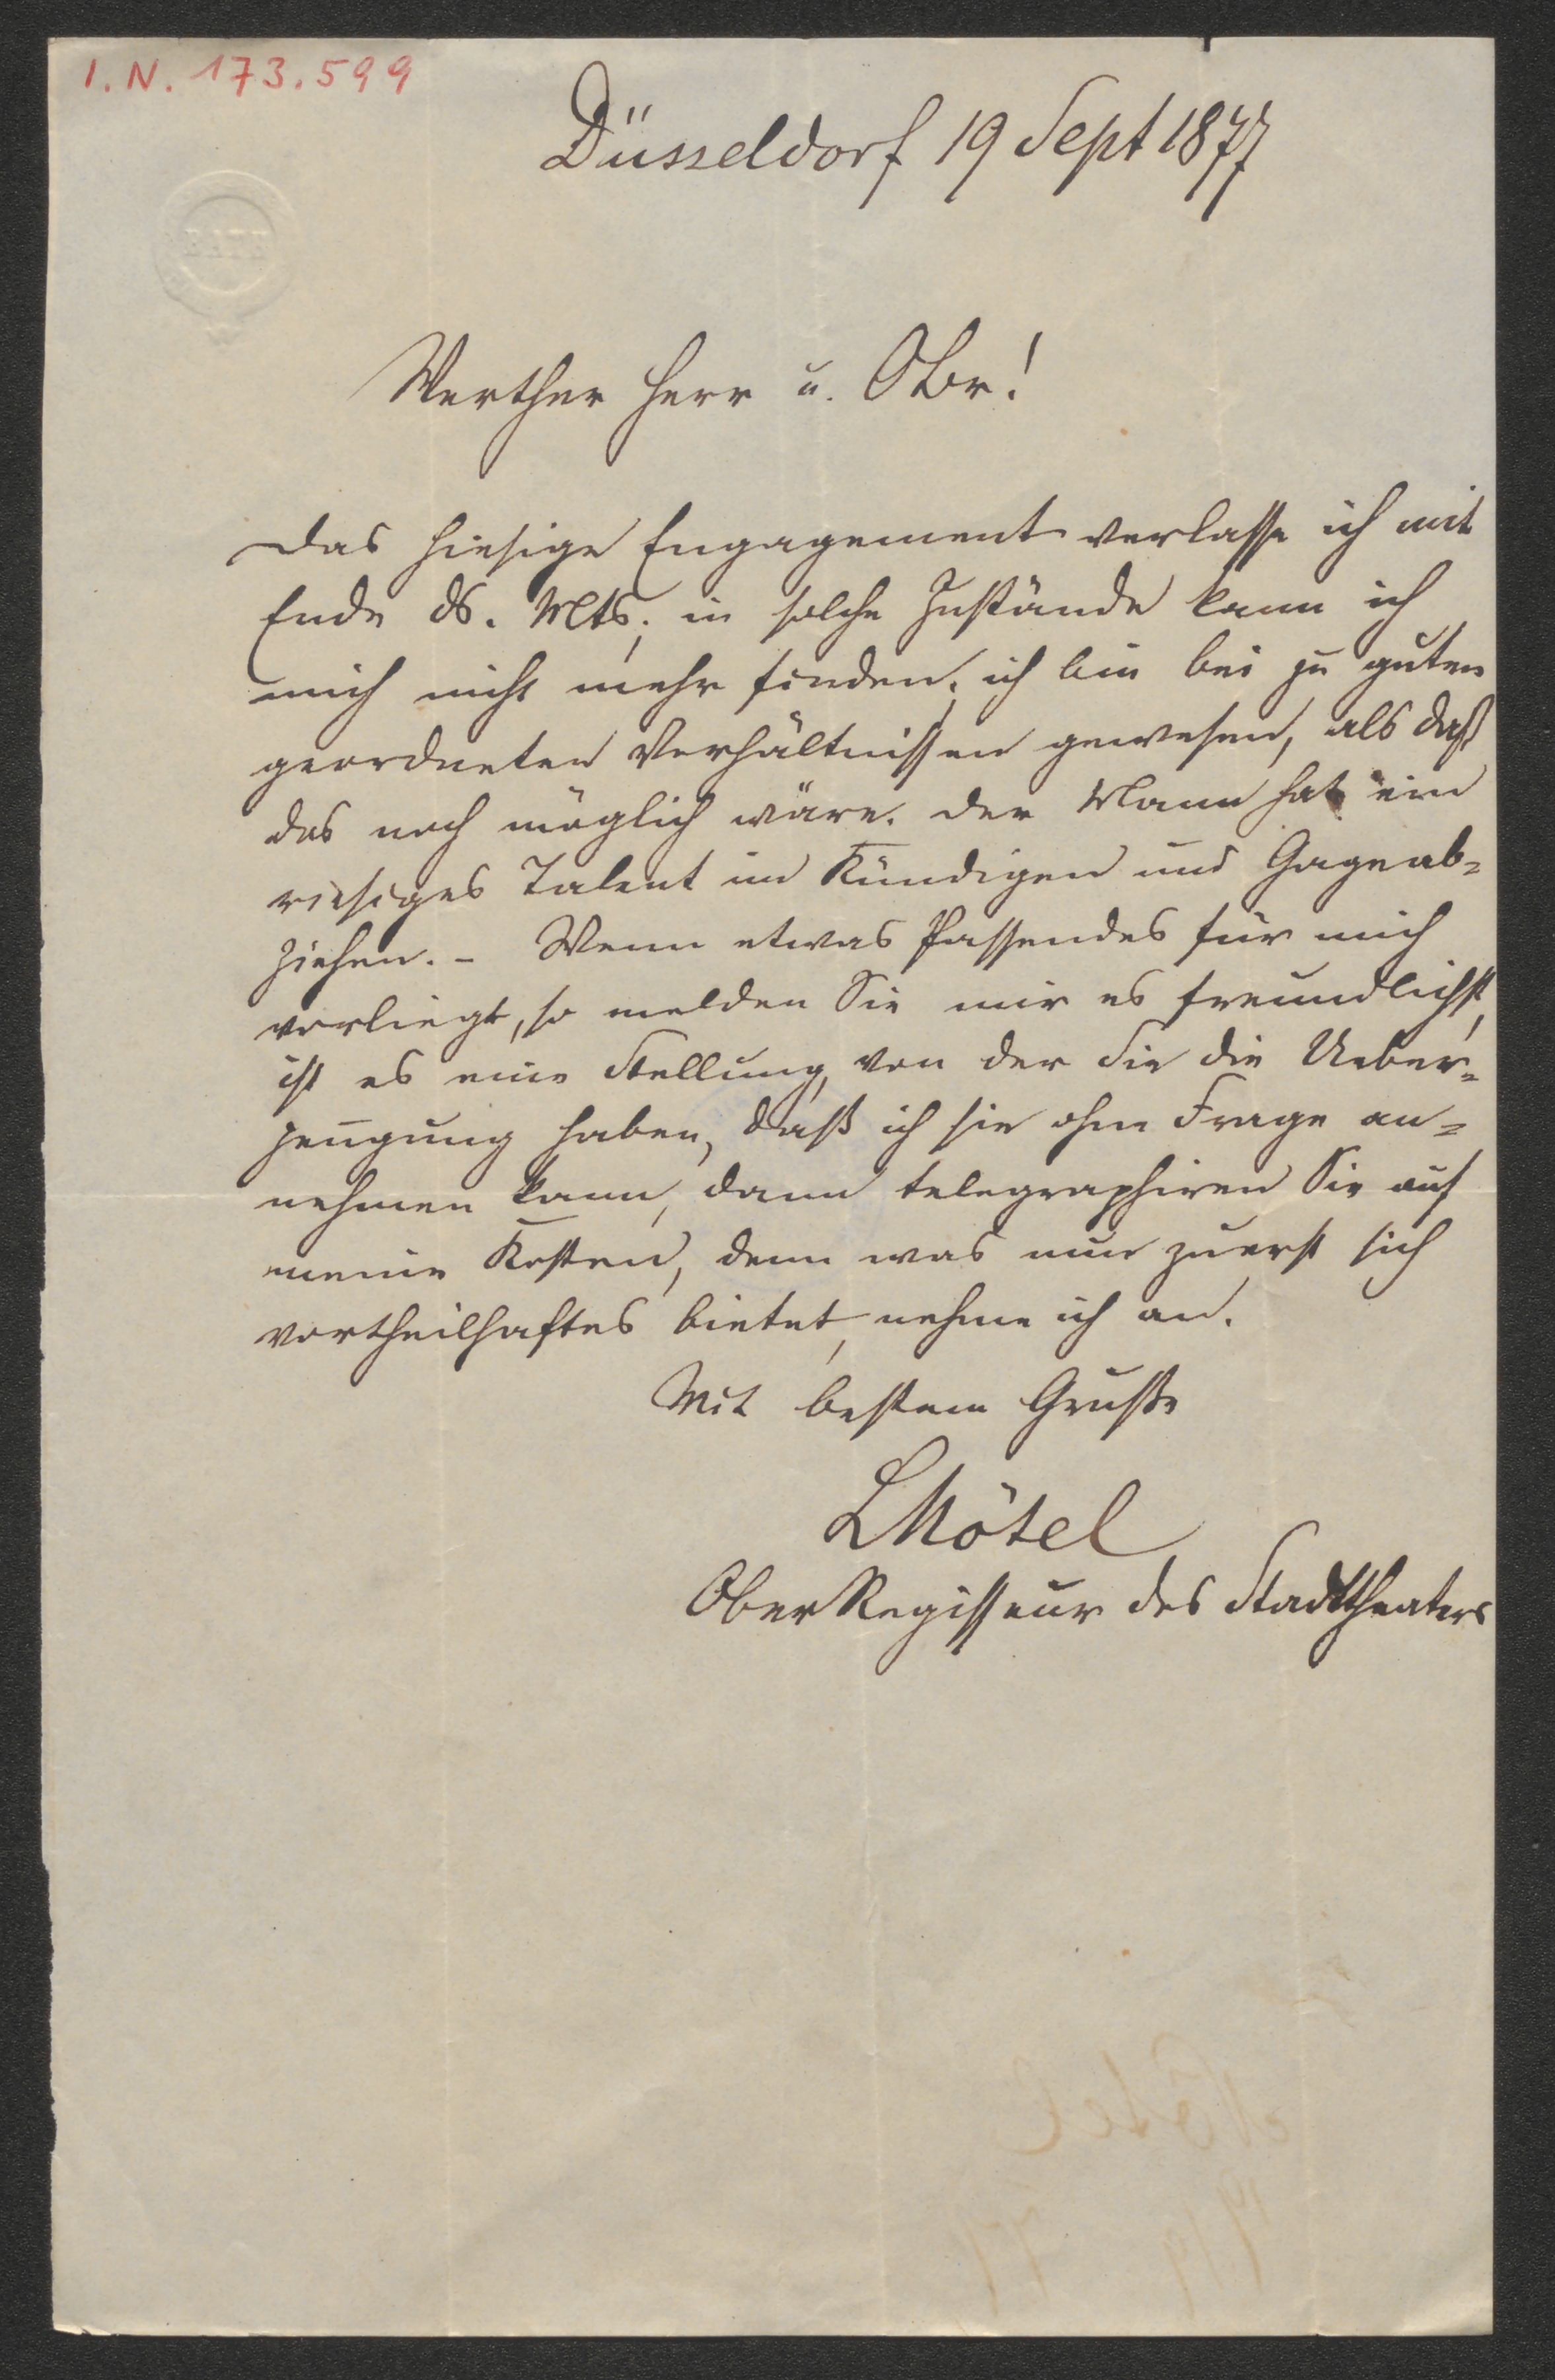 I. N. 173.599
Düsseldorf 19 Sept 1877
BATH
Werther Herr u. OBr!
Das hiesige Engagement verlasse ich mit
Ende ds. Mts; in solche Zustände kann ich
mich nicht mehr finden, ich bin bei zu guten
geordneten Verhältnissen gewesen, als daß
das noch möglich wäre. Der Mann hat ein
riesiges Talent im Kündigen und Gageab-
ziehen. - Wenn etwas Passendes für mich
vorliegt, so melden Sie mir es freundlichst,
ist es eine Stellung, von der Sie die Ueber-
zeugung haben, daß ich sie ohne Frage an-
nehmen kann, dann telegraphiren Sie auf
meine Kosten, denn was nun zuerst sich
vortheilhaftes bietet, nehme ich an.
Mit bestem Gruße
LNötel
Ober Regisseur des Stadttheaters